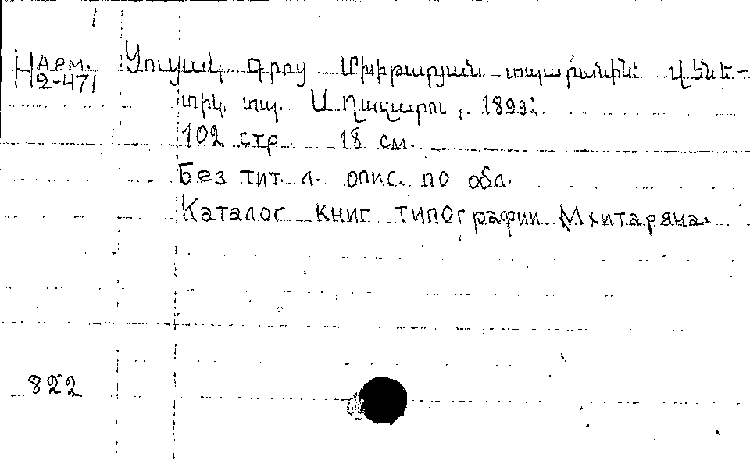 Н Арм. 2-471
Ցուցակ գրոց Մխիթարյան տպարանին: Վենե-
տիկ, տպ. Ս. Ղազարու, 1893:
102 стр. 18 см.
Без тит. л. опис. по обл.
Каталог книг типографии Мхитаряна.
822